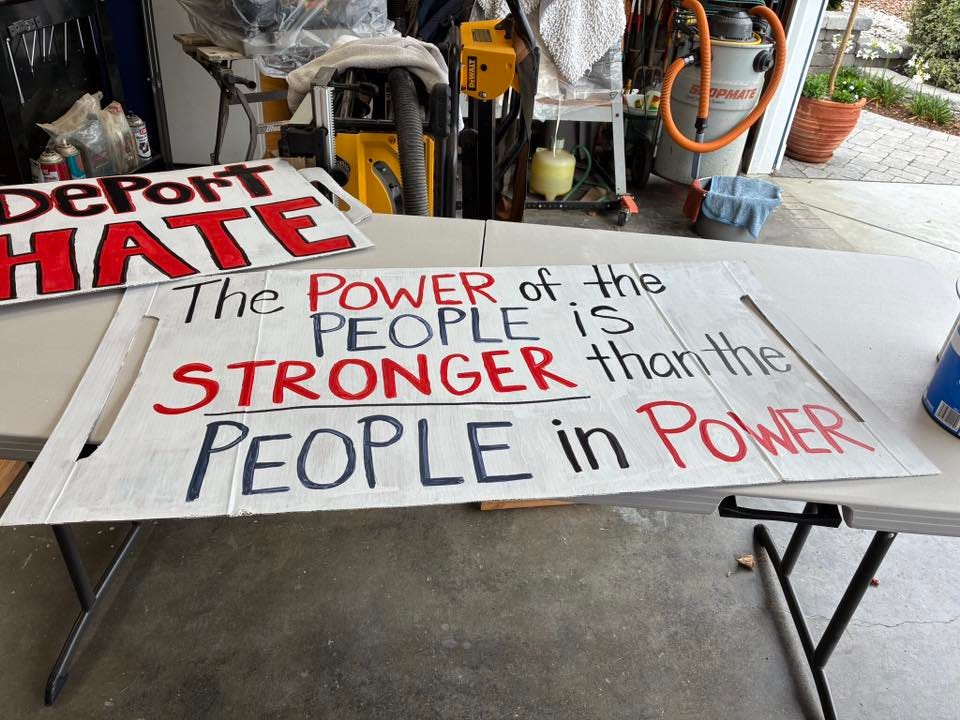 DePort
HATE
The POWER of the
PEOPLE is
STRONGER than the
PEOPLE in POWER
DEWALT
SHOPMATE